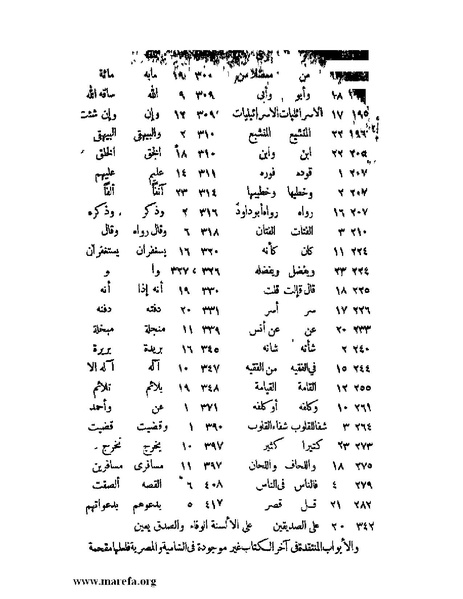 من ممثلا من ١٩ ٣٠٠ مابه مائة
١٨ وأبو وأبى ٩ ٣٠٩ الله ساقه الله
١٩٥ ١٧ الاسرائليات الاسرائيليات ١٢ ٣٠٩ وإن وإن شئت
١٩٦ ٢٢ للتشيع ٢ ٣١٠ والبيهقى البيهقى
٢٠٥ ٢٢ ابن وابن ١٨ ٣١٠ الخلق
٢٠٧ ١ قوده فوره ١٤ ٣١١ عليم عليهم
٢٠٧ ٢ وخطبها وخطيبها ٢٣ ٣١٤ آنفاً ألفاً
٢٠٧ ١٦ رواه رواه أبو داود ٢ ٣١٦ وذكر وذكره
٢١٠ ٣ الفتات الفتان ٦ ٣١٨ وقال رواه وقال
٢٢٤ ١١ كان كأنه ١٦ ٣٢٠ يستغفران
٢٢٤ ٢٣ ويفضل ويفضله ٣٢٦ ، ٣٢٧ وا و
٢٢٥ ١٨ قال قالت قلت ١٩ ٣٣٠ أنه إذا أنه
٢٢٦ ١٧ سر أسر ٢٠ ٣٣١ دفته
٢٣٣ ٢٠ عن عن أنس ١١ ٣٣٩ منجلة مبخلة
٢٤٠ ٢ شأنه شانه ١٦ ٣٤٥ بريدة بريرة
٢٤٤ ١٥ فى الفقيه من الفقيه ١٠ ٣٤٧ آكه آكه الا
٢٥٥ ١٢ القامة القيامة ١٩ ٣٤٨ بلائم تلائم
٢٦١ ١٠ وكافه أو كلفه ١ ٣٧١ عن وأحمد
٢٦٤ ٣ شفا للقلوب شفاء القلوب ١ ٣٩٠ وقضيت قضيت
٢٧٣ ٢٣ كتيرا كثير ١٠ ٣٩٧ يخرج تخرج
٢٧٥ ١٨ واللحاف واللحان ١١ ٣٩٧ مسافرى مسافرين
٢٧٩ ٤ فالناس فى الناس ٦ ٤٠٨ القصه ألصقت
٢٨٢ ٢١ قصر ٥ ٤١٧ بدعوهم بدعواتهم
٣٤٢ ٢٠ على الصديقين على الألسنة والصدق يمين
والأبواب المنتقدة فى آخر الكتاب غير موجودة فى الشامية والمصرية فلعلها مقحمة
www.marefa.org